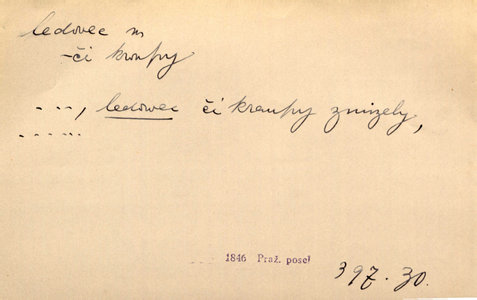 ledovec m
-či kroupy
- - -, ledowec či kraupy zmizely,
- - - - -
1846 Praž. posel
397. 30.